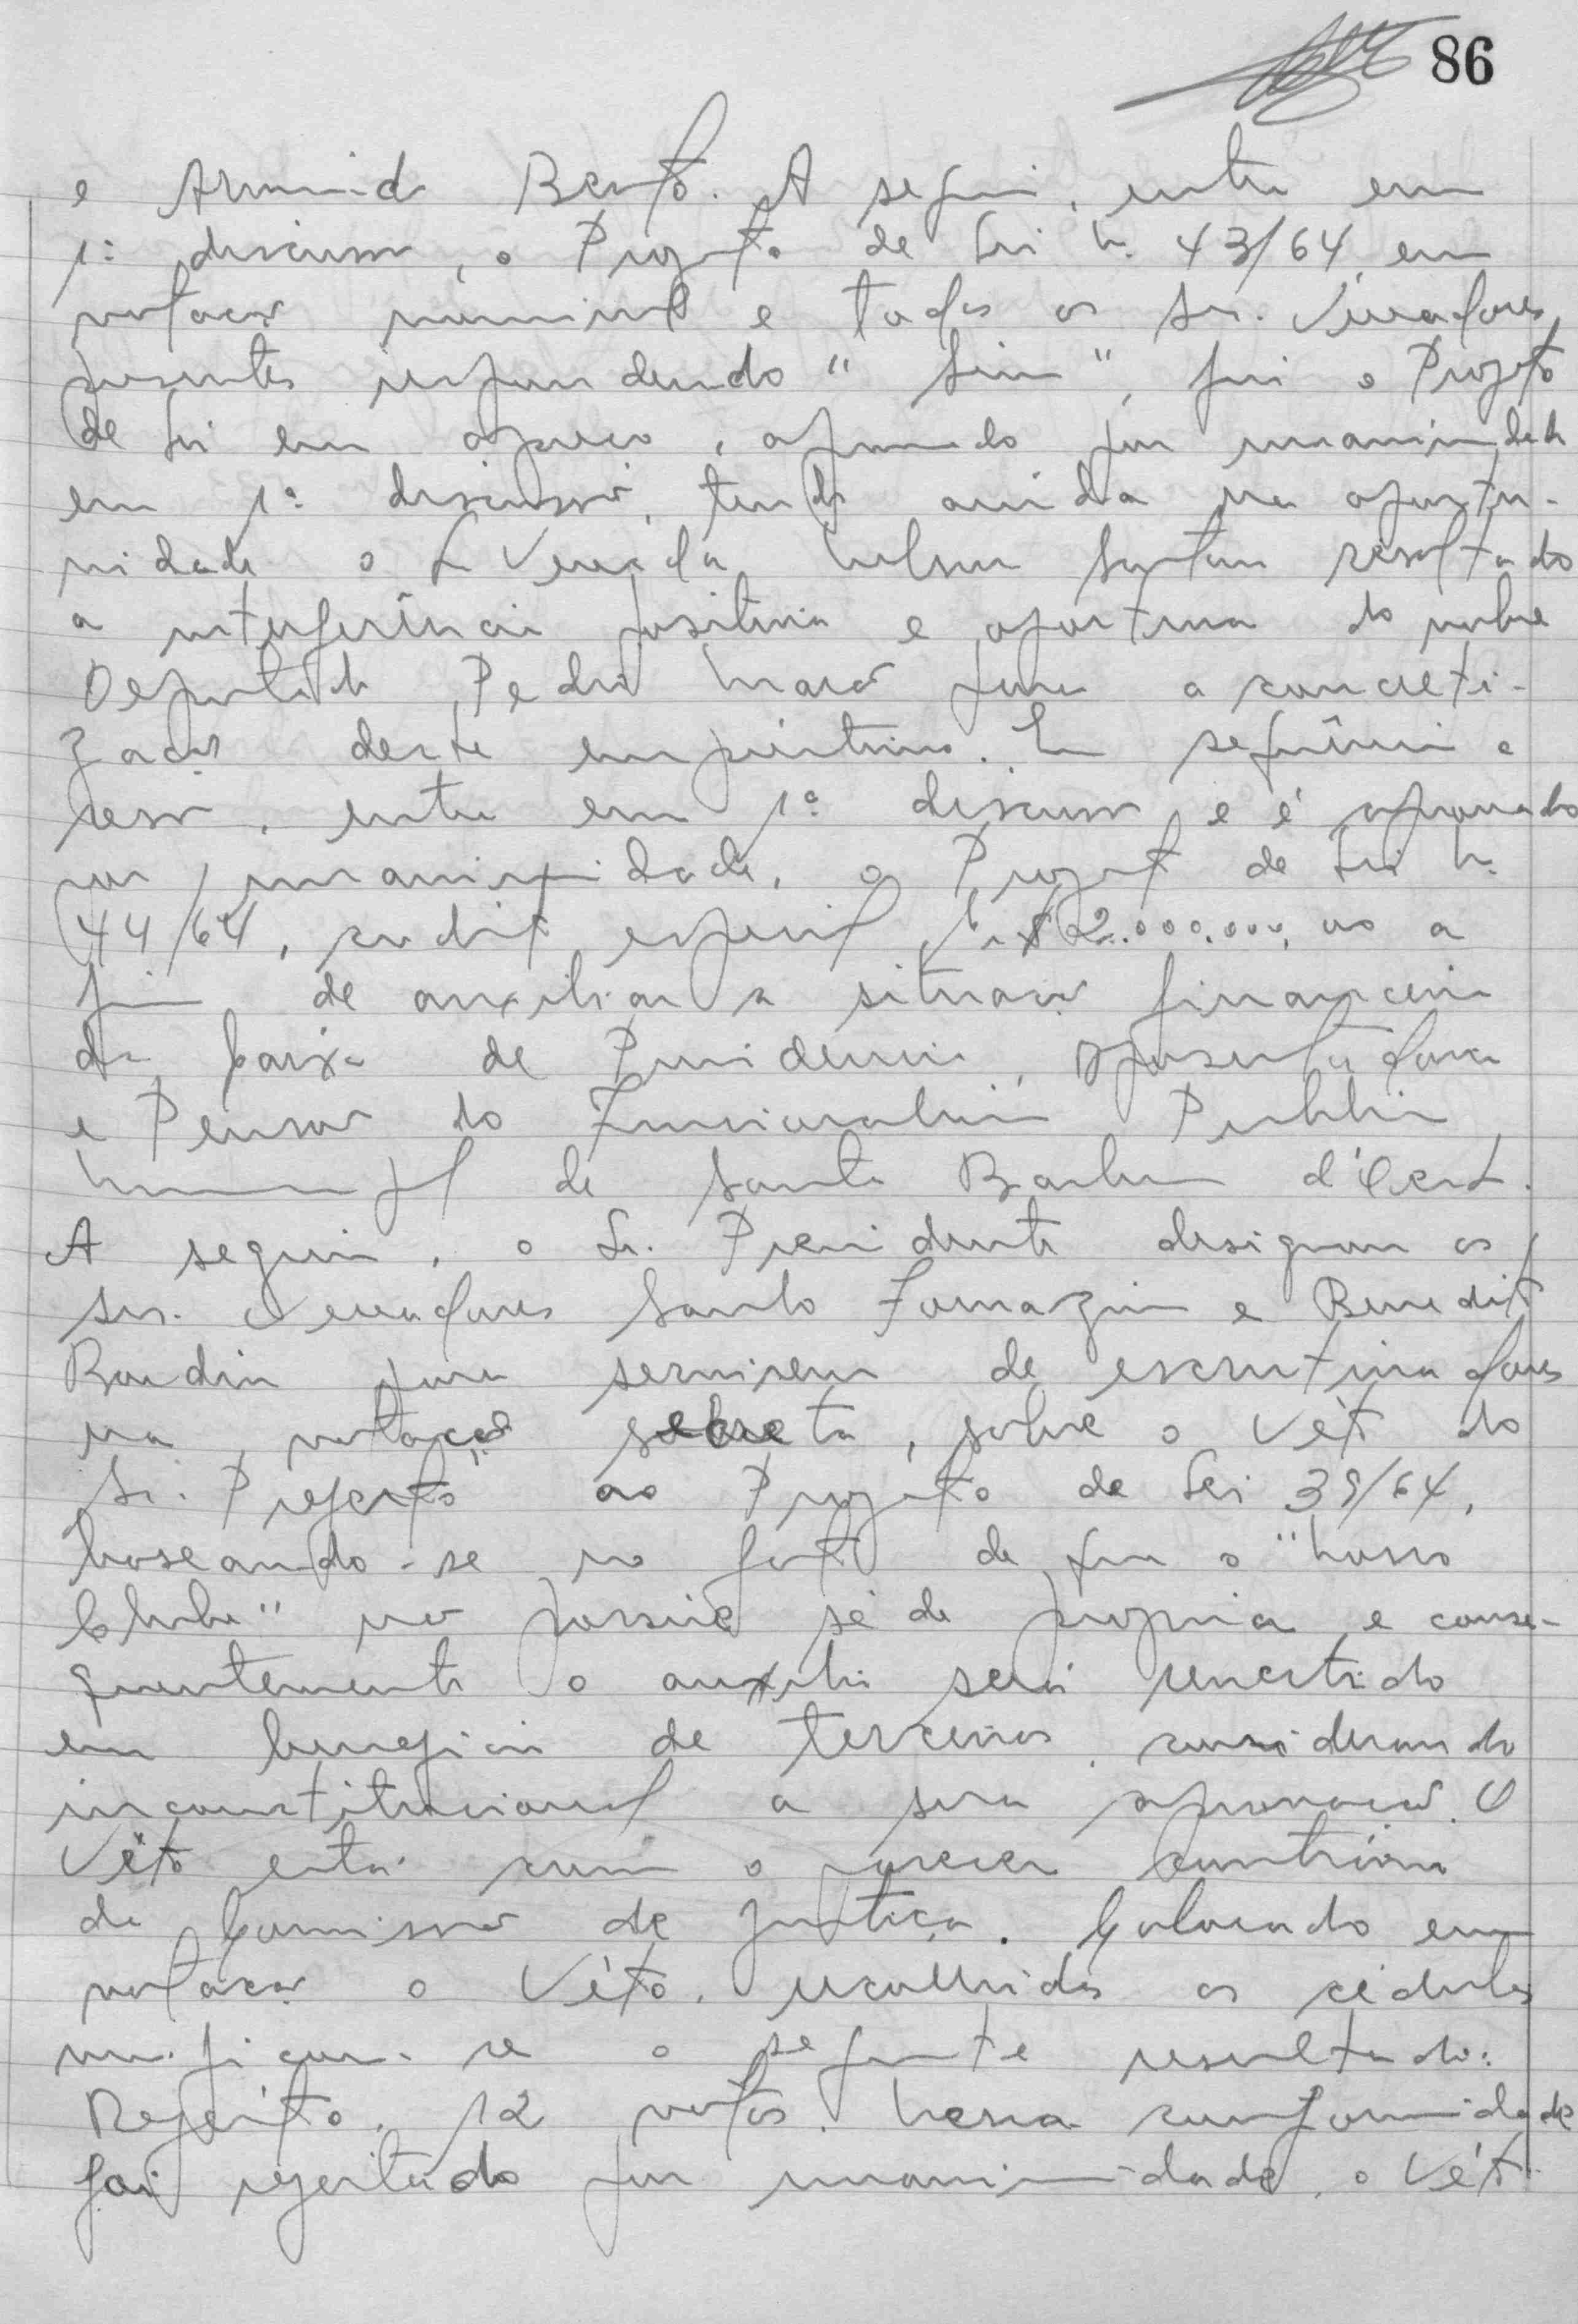 86
e Armindo Bento. A seguir, entra em
1ª discussão, o Projeto de Lei n. 43/64, em
votação nominal e todos os srs. Vereadores
presentes respondendo "Sim", foi o Projeto
de Lei em apreço, aprovado por unanimidade
em 1ª discussão, tendo ainda na oportu-
nidade o Sr Vereador Nelson resaltado
a interferência positiva e oportuna do nobre
Deputado Pedro para a concreti-
zação deste empréstimo. Em sequência a
sessão, entra em 1ª discussão e é aprovado
por unanimidade, o Projeto de Lei n.
44/64, credito especial Cr$ 2.000.000,00 a
fim de auxiliar a situação financeira
da Caixa de Previdencia, Aposentadoria
e Pensão do Funcionalismo Publico
Municipal de Santa Barbara d'Oeste.
A seguir, o Sr. Presidente designou os
srs. Vereadores Santo Fornazin e Benedito
para servirem de escrutinadores
na votação secreta, sobre o Véto do
Sr. Prefeito ao Projeto de Lei 39/64,
baseando-se no fato de que o "Nosso
Clube" não possue séde propria e conse-
quentemente o auxilio será revertido
em beneficio de terceiros, considerando
inconstitucional a sua aprovação. O
Véto está com o parecer contrário
da Comissão de Justiça. Colocado em
votação o Véto, recolhidas as cédulas
verificou-se o seguinte resultado:
Rejeito, 12 votos. Nessa conformidade
foi rejeitado por unanimidade, o Véto